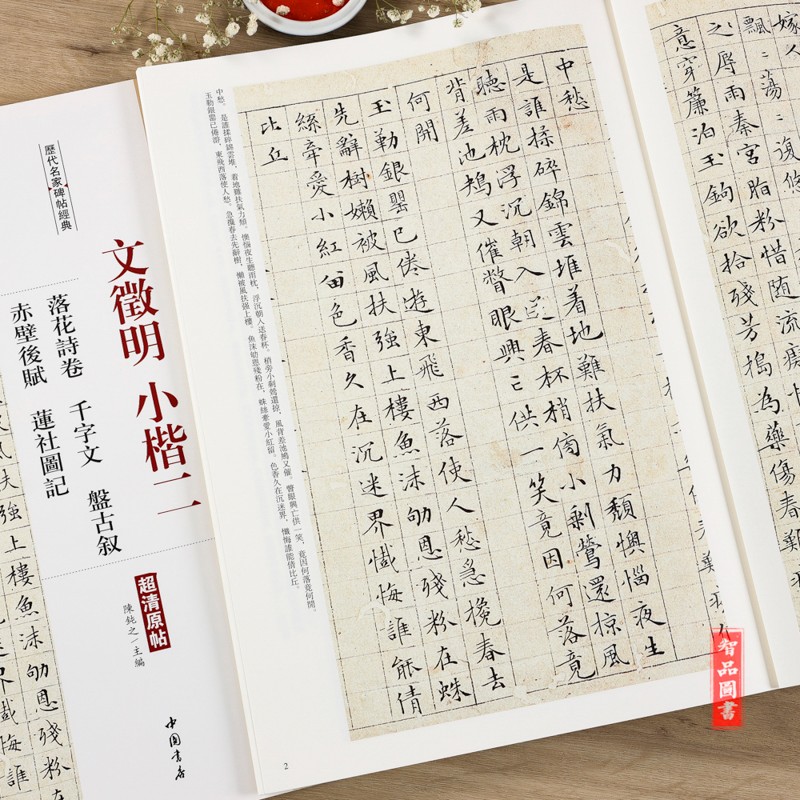 嫁人
飄〻蕩〻復悠
之辱雨秦宮脂粉惜随流
意穿簾泊玉鉤欲拾殘芳搗為藥傷春難
中愁
是誰揉碎錦雲堆着地難扶氣力頹懊惱夜生
聽雨枕浮沉朝入送春杯稍傍小剩鶯還掠風
背差池鴂又催瞥眼興亡供一笑竟因何落竟
何開
玉勒銀罌已倦遊東飛西落使人愁急攙春去
先辭樹嬾被風扶強上樓魚沫呴恩殘粉在蛛
絲牽愛小紅留色香久在沉迷界懺悔誰能倩
比丘
中愁。是誰揉碎錦雲堆，着地難扶氣力頹。懊惱夜生聽雨枕，浮沉朝入送春杯。稍傍小剩鶯還掠，風背差池鴂又催。瞥眼興亡供一笑，竟因何落竟何開。
玉勒銀罌已倦遊，東飛西落使人愁。急攙春去先辭樹，懶被風扶強上樓。魚沫呴恩殘粉在，蛛絲牽愛小紅留。色香久在沉迷界，懺悔誰能倩比丘。
2
歷代名家碑帖經典
文徵明 小楷二
落花詩卷 千字文 盤古叙
赤壁後賦 蓮社圖記
超清原帖
陳鈍之/主編
中國書店
強上樓魚沫呴恩殘粉在
界懺悔誰
智品圖書